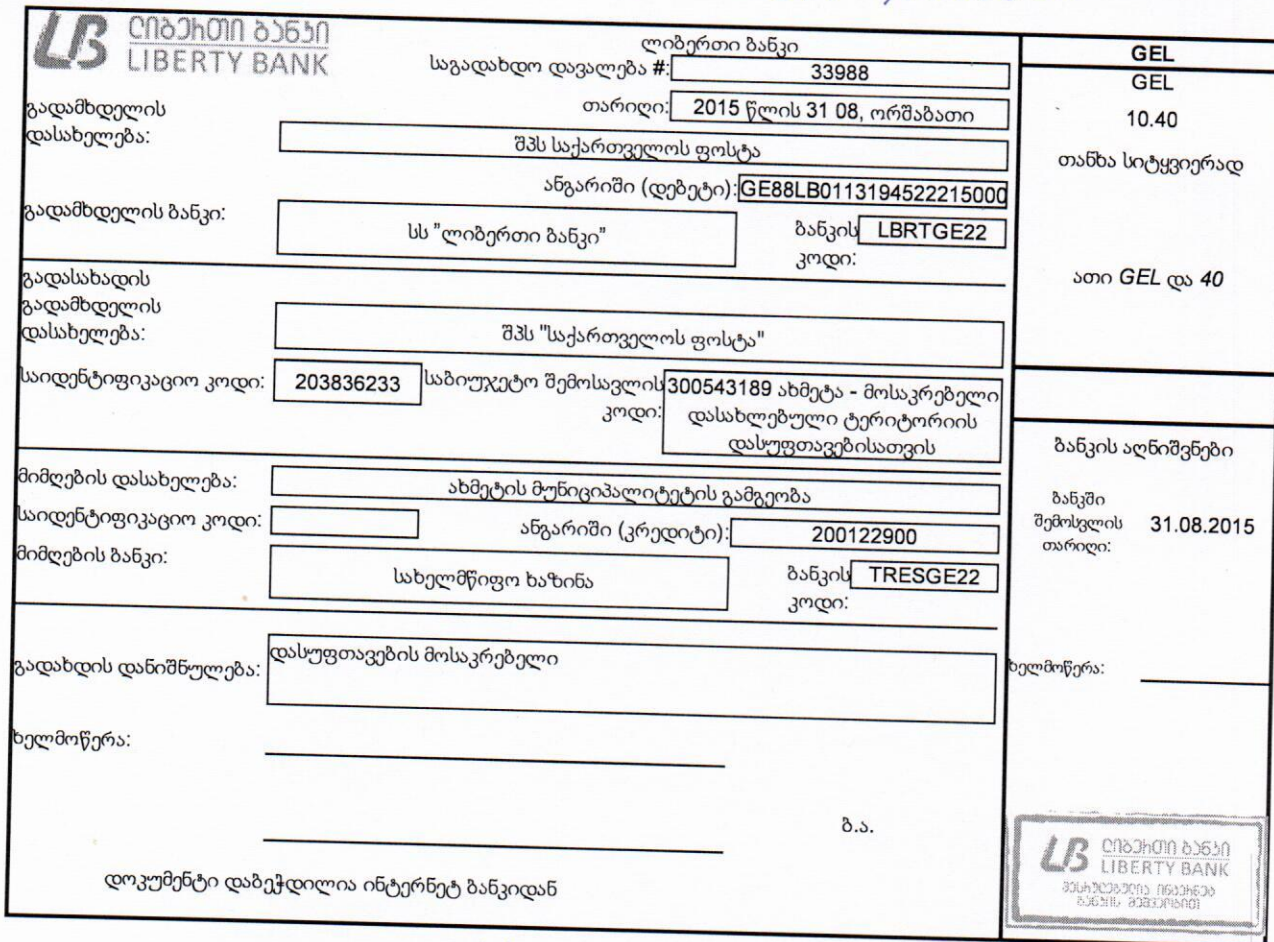 ლიბერთი ბანკი
LIBERTY BANK
ლიბერთი ბანკი
საგადახდო დავალება #: 33988
თარიღი: 2015 წლის 31 08, ორშაბათი
გადამხდელის
დასახელება:
შპს საქართველოს ფოსტა
ანგარიში (დებეტი): GE88LB0113194522215000
გადამხდელის ბანკი:
სს "ლიბერთი ბანკი"
ბანკის LBRTGE22
კოდი:
გადასახადის
გადამხდელის
დასახელება:
შპს "საქართველოს ფოსტა"
საიდენტიფიკაციო კოდი: 203836233
საბიუჯეტო შემოსავლის
კოდი:
300543189 ახმეტა - მოსაკრებელი
დასახლებული ტერიტორიის
დასუფთავებისათვის
მიმღების დასახელება: ახმეტის მუნიციპალიტეტის გამგეობა
საიდენტიფიკაციო კოდი:
ანგარიში (კრედიტი): 200122900
მიმღების ბანკი:
სახელმწიფო ხაზინა
ბანკის TRESGE22
კოდი:
გადახდის დანიშნულება: დასუფთავების მოსაკრებელი
ხელმოწერა:
ბ.ა.
დოკუმენტი დაბეჭდილია ინტერნეტ ბანკიდან
GEL
GEL
10.40
თანხა სიტყვიერად
ათი GEL და 40
ბანკის აღნიშვნები
ბანკში
შემოსვლის 31.08.2015
თარიღი:
ხელმოწერა:
ლიბერთი ბანკი
LIBERTY BANK
შესრულებულია ინტერნეტ
ბანკის მეშვეობით